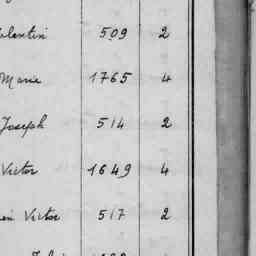 509 2
Marie 1765 4
Joseph 514 2
Victor 1649 4
Victor 517 2